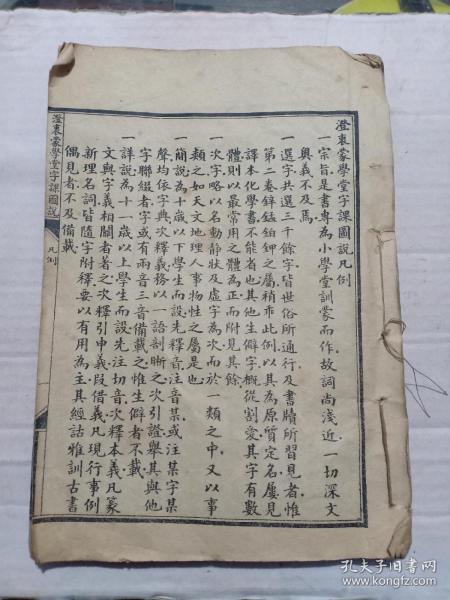 澄衷蒙學堂字課圖說凡例
一宗旨是書專為小學堂訓蒙而作故詞尚淺近一切深文
奧義不及焉
一選字共選三千餘字皆世俗所通行及書牘所習見者惟
第二卷鋅錳鉑鉀之屬稍乖此例以其為原質定名屢見
譯本化學書不能省也其他生僻字概從割愛其字有數
體則以最常用之體為正而附見其餘
一次字略以名動靜狀及虛字為次而於一類之中又以事
類之如天文地理人事物性之屬是也
一簡說為十歲以下學生而設先釋音注音某或注某字某
聲均依字典次釋義務以一語剖晰之次引證舉其與他
字聯綴者字或有兩音三音備載之惟生僻者不載
一詳說為十一歲以上學生而設先注切音次釋本義凡篆
文與字義相關者著之次釋引申義叚借義凡現行事例
新理名詞皆隨字附釋要以有用為主其經詁雅訓古書
偶見者不及備載
澄衷蒙學堂字課圖說
凡例
孔夫子旧书网
www.kongfz.com